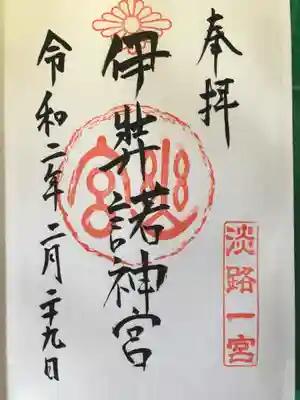 奉拝
淡路一宮
伊弉諾神宮
令和二年二月二十九日